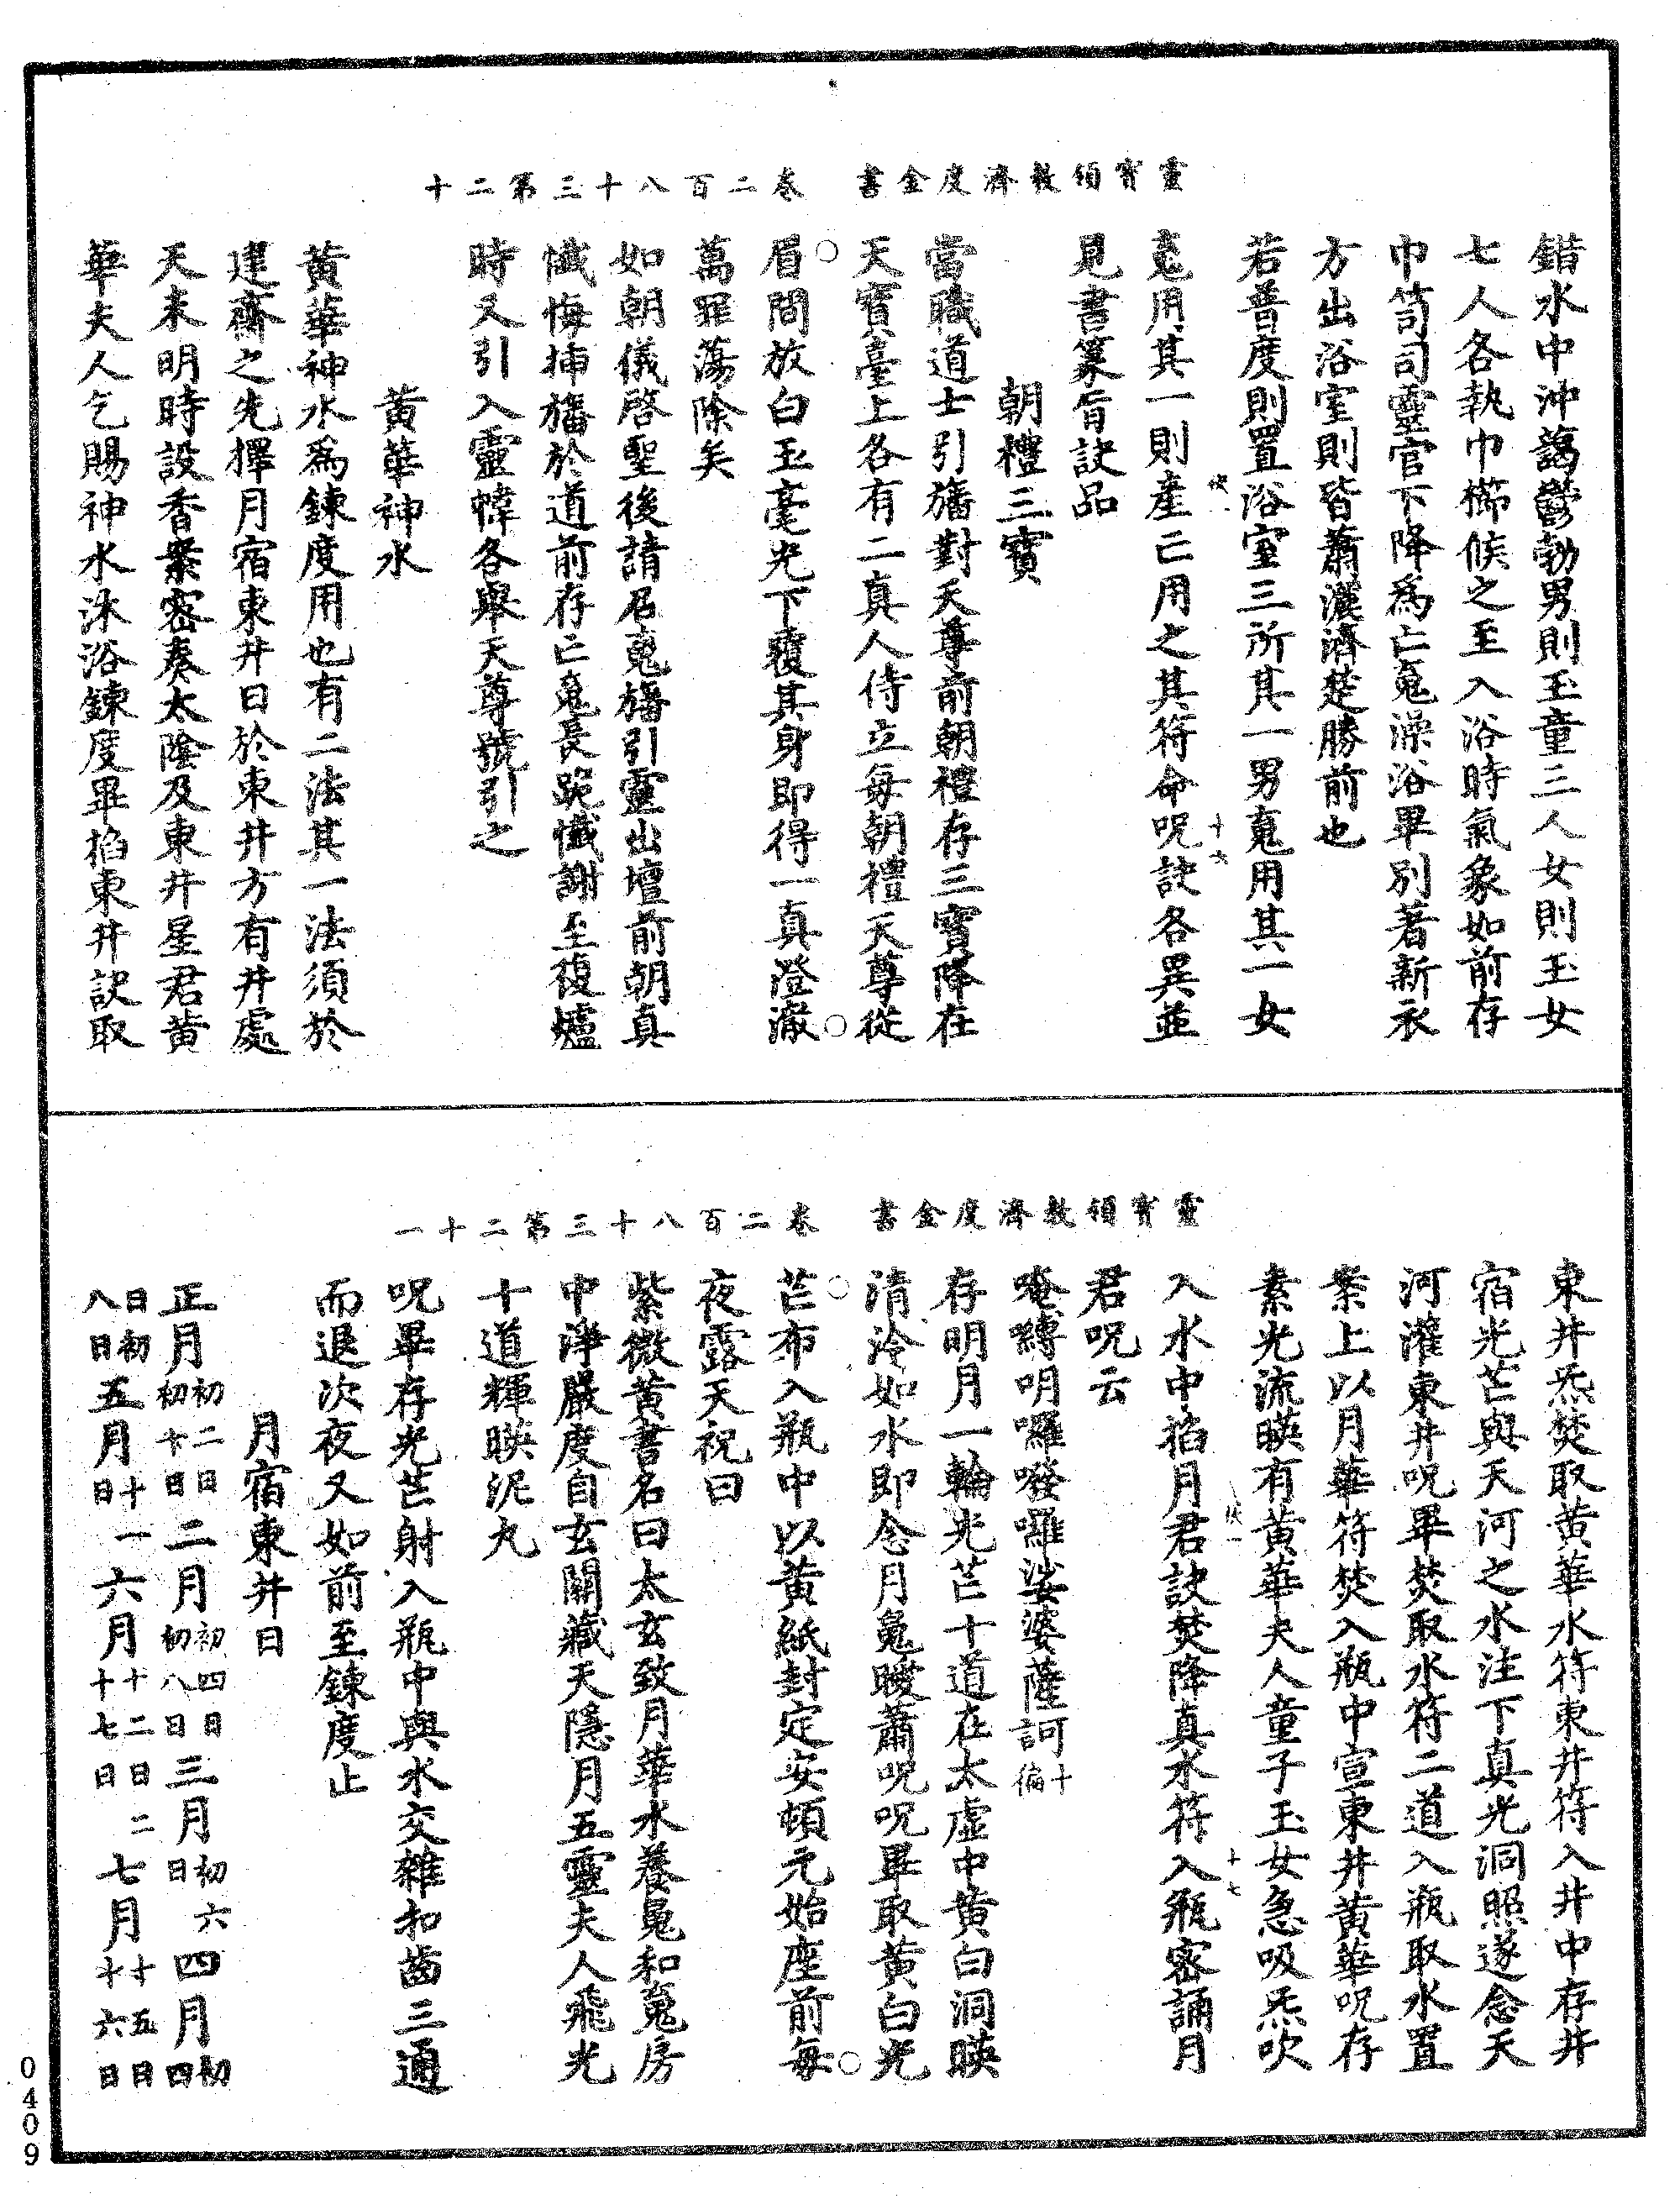 靈寶領教濟度金書　卷二百八十三第二十
錯水中沖藹鬱勃男則玉童三人女則玉女
七人各執巾櫛候之至入浴時氣象如前存
巾笥司靈官下降為亡䰟澡浴畢別著新衣
方出浴室則皆蕭灑濟楚勝前也
若普度則置浴室三所其一男䰟用其一女
䰟用其一則產亡用之其符命呪訣各異並
見書篆旨訣品
朝禮三寶
當職道士引旛對天尊前朝禮存三寶降在
天寶臺上各有二真人侍立每朝禮天尊從
眉間放白玉毫光下覆其身即得一真澄澈
萬罪蕩除矣
如朝儀啓聖後請召䰟旛引靈出壇前朝真
懺悔插旛於道前存亡䰟長跪懺謝至復爐
時又引入靈幃各舉天尊號引之
黃華神水
黃華神水為鍊度用也有二法其一法須於
建齋之先擇月宿東井日於東井方有井處
天未明時設香案密奏太陰及東井星君黃
華夫人乞賜神水沐浴鍊度畢掐東井訣取
靈寶領教濟度金書　卷二百八十三第二十一
東井炁焚取黃華水符東井符入井中存井
宿光芒與天河之水注下真光洞照遂念天
河灌東井呪畢焚取水符二道入瓶取水置
案上以月華符焚入瓶中宣東井黃華呪存
素光流暎有黃華夫人童子玉女急吸炁吹
入水中掐月君訣焚降真水符入瓶密誦月
君呪云
唵嚩明囉㗶囉娑婆薩訶十徧
存明月一輪光芒十道在太虛中黃白洞暎
清泠如水即念月䰟曖蕭呪呪畢取黃白光
芒布入瓶中以黃紙封定安頓元始座前每
夜露天祝曰
紫微黃書名曰太玄致月華水養䰟和䰟房
中淨嚴度自玄關藏天隱月五靈夫人飛光
十道輝暎泥丸
呪畢存光芒射入瓶中與水交雜扣齒三通
而退次夜又如前至鍊度止
月宿東井日
正月初二日初十日二月初四日初八日三月初六日四月初四
日初八日五月十一日六月十二日二十七日七月十五日十六日
0409